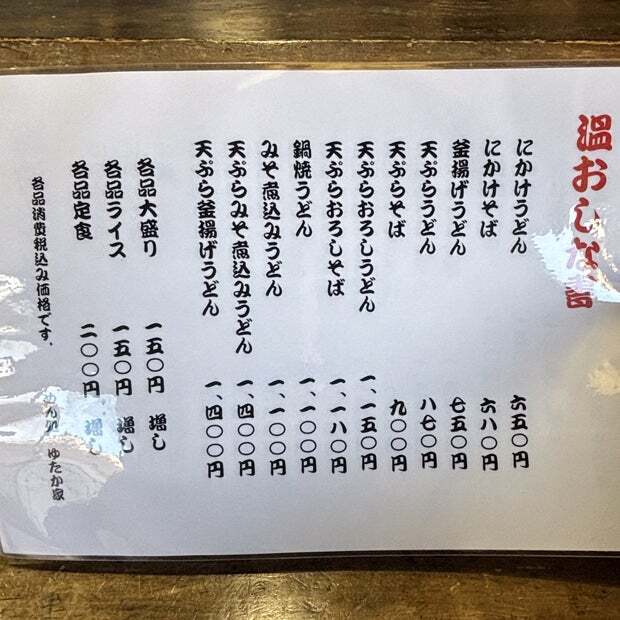 温おしな書
にかけうどん 六五〇円
にかけそば 六八〇円
釜揚げうどん 七五〇円
天ぷらうどん 八七〇円
天ぷらそば 九〇〇円
天ぷらおろしうどん 一、一五〇円
天ぷらおろしそば 一、一八〇円
鍋焼うどん 一、一〇〇円
みそ煮込みうどん 一、一〇〇円
天ぷらみそ煮込みうどん 一、四〇〇円
天ぷら釜揚げうどん 一、四〇〇円
各品大盛り 一五〇円 増し
各品ライス 一五〇円 増し
各品定食 二〇〇円 増し
各品消費税込み価格です。 めん処 ゆたか家